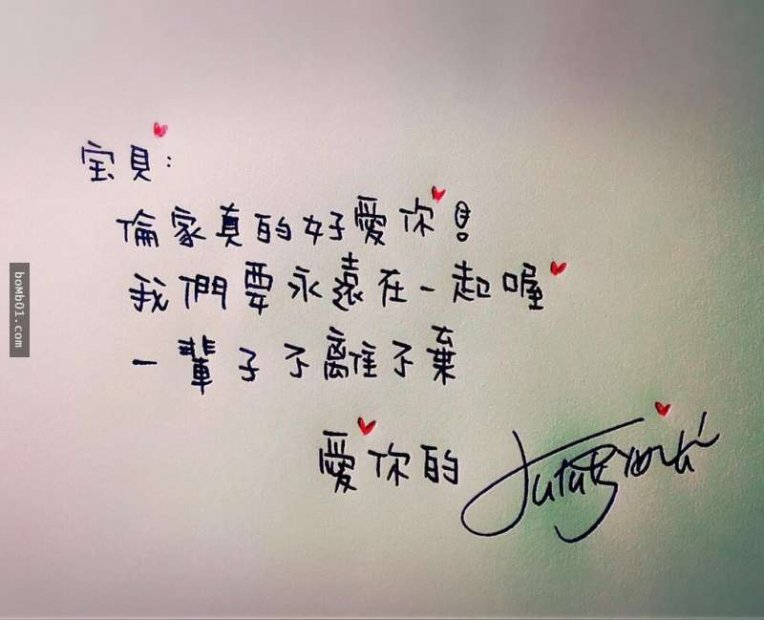 宝貝:
倫家真的好愛你!
我們要永遠在一起喔
一輩子不離不棄
愛你的
boMb01.com